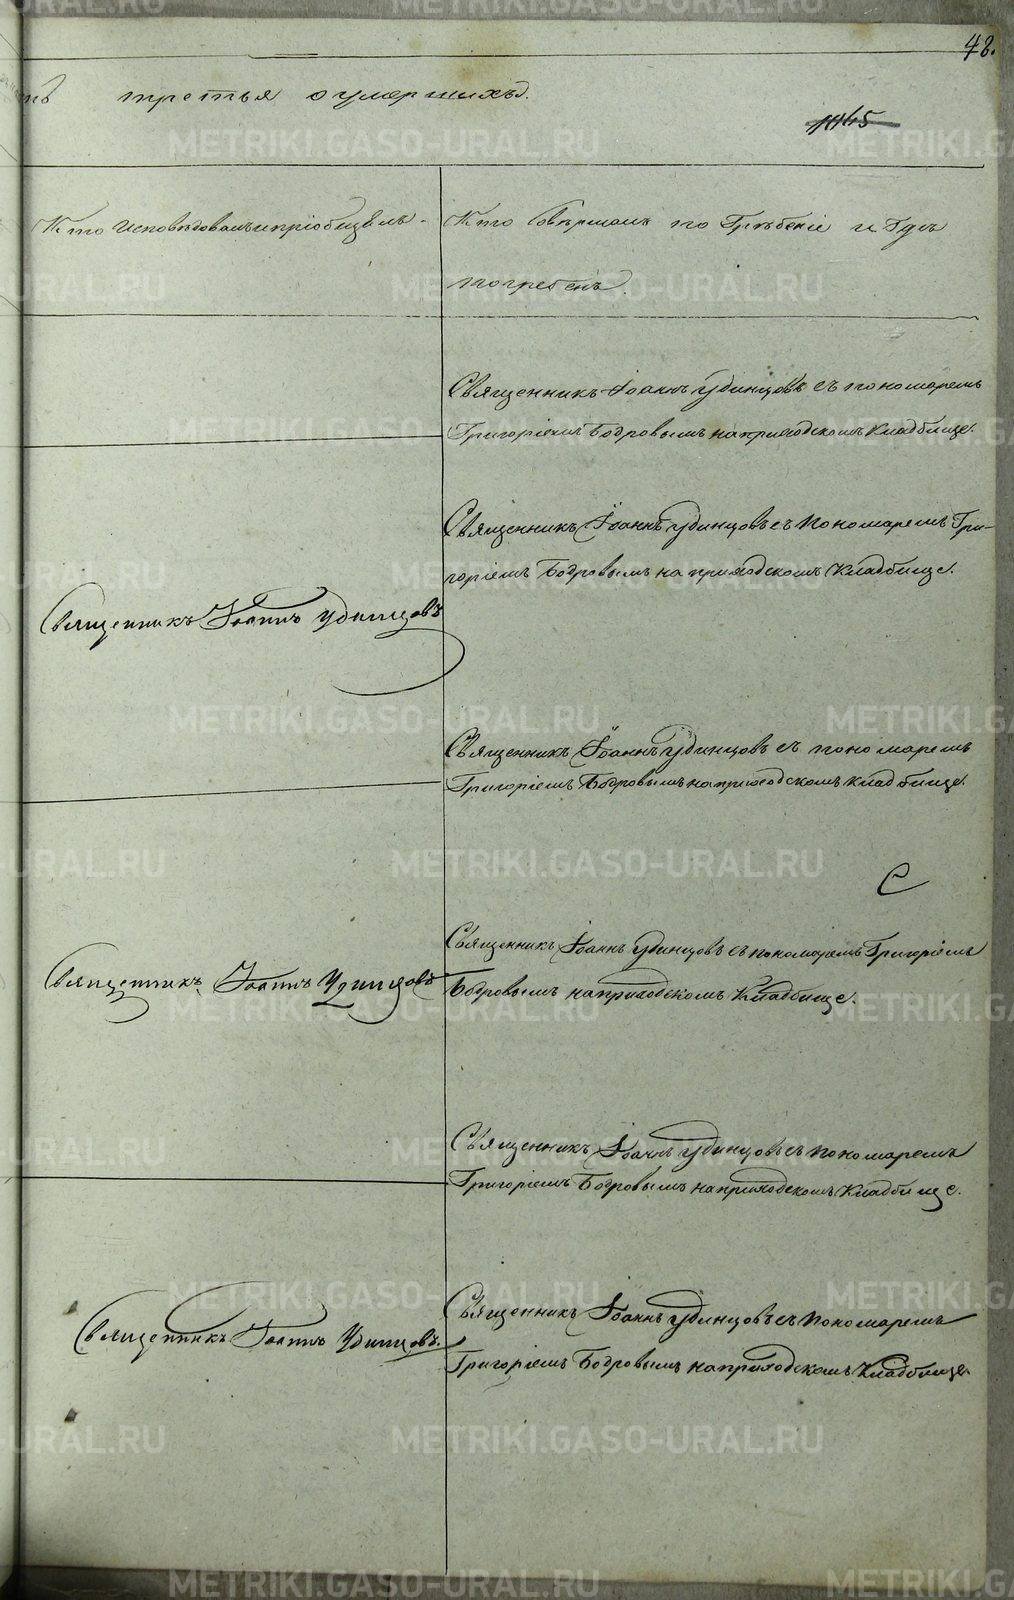 48.
третья о умершихъ.
1145
Кто исповѣдовалъ и пріобщалъ.
Кто совершалъ по Грѣбеніе и Гдѣ
погребенъ.
Священникъ Іоаннъ Удинцовъ съ пономаремъ
Григоріемъ Бобровымъ на приходскомъ Кладбище.
Священникъ Іоаннъ Удинцовъ съ пономаремъ Гри-
горіемъ Бобровымъ на приходскомъ Кладбище.
Священникъ Іоаннъ Удинцовъ
Священникъ Іоаннъ Удинцовъ съ пономаремъ
Григоріемъ Бобровымъ на приходскомъ кладбище.
С
Священникъ Іоаннъ Удинцовъ съ пономаремъ Григоріемъ
Священникъ Іоаннъ Удинцовъ
Бобровымъ на приходскомъ Кладбище.
Священникъ Іоаннъ Удинцовъ съ пономаремъ
Григоріемъ Бобровымъ на приходскомъ Кладбище.
Священникъ Іоаннъ Удинцовъ съ пономаремъ
Священникъ Іоаннъ Удинцовъ.
Григоріемъ Бобровымъ на приходскомъ Кладбище.
METRIKI.GASO-URAL.RU